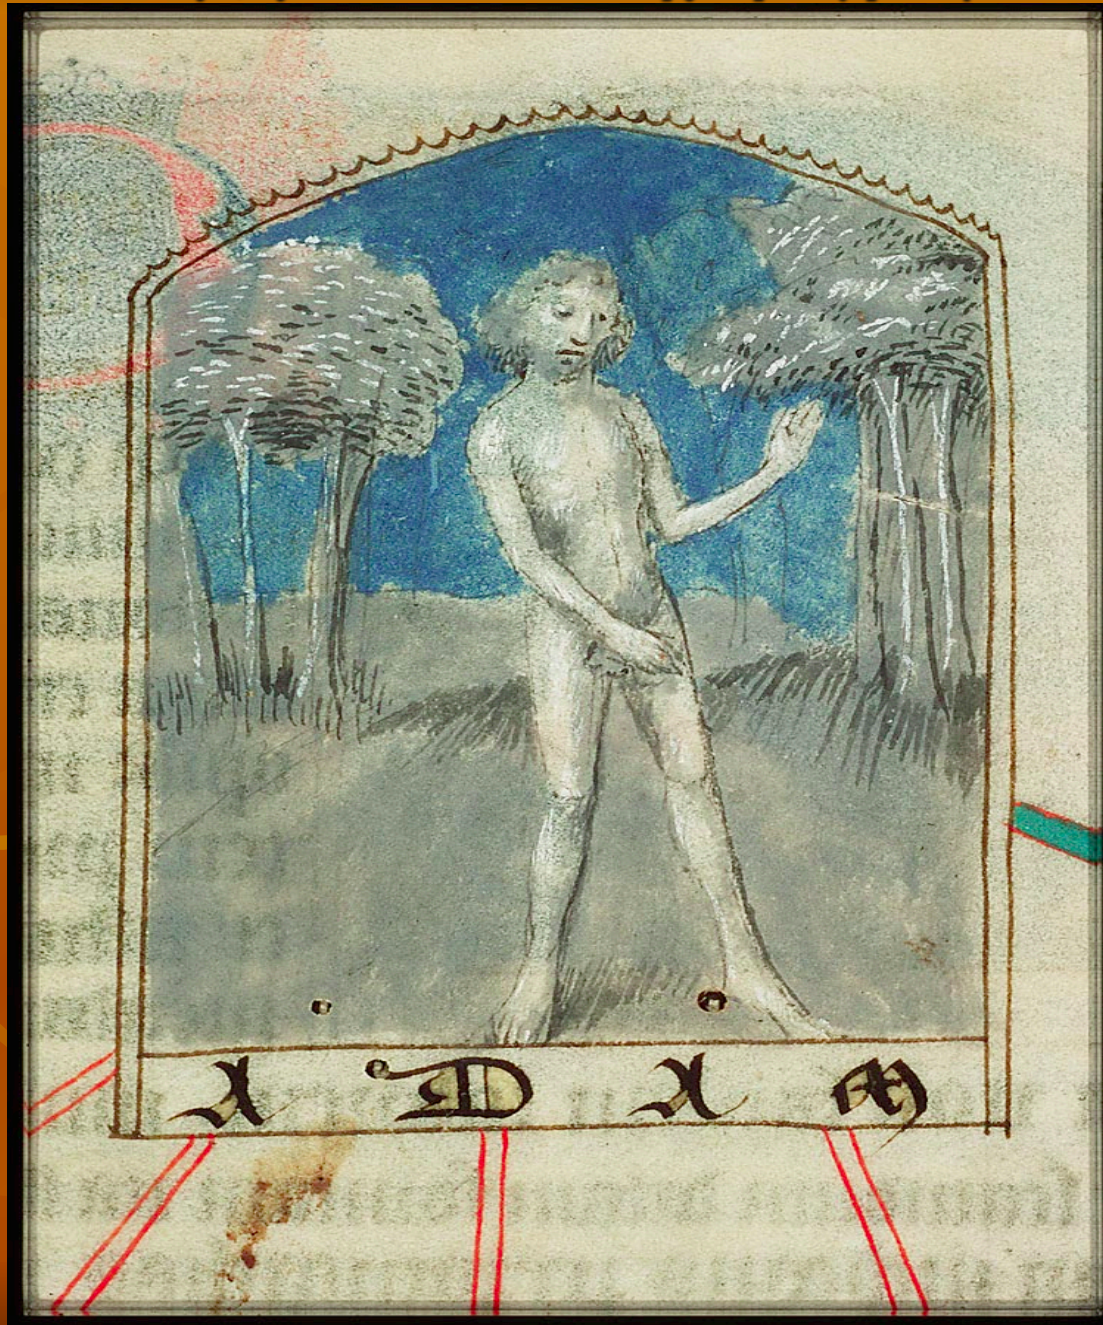 A D A M